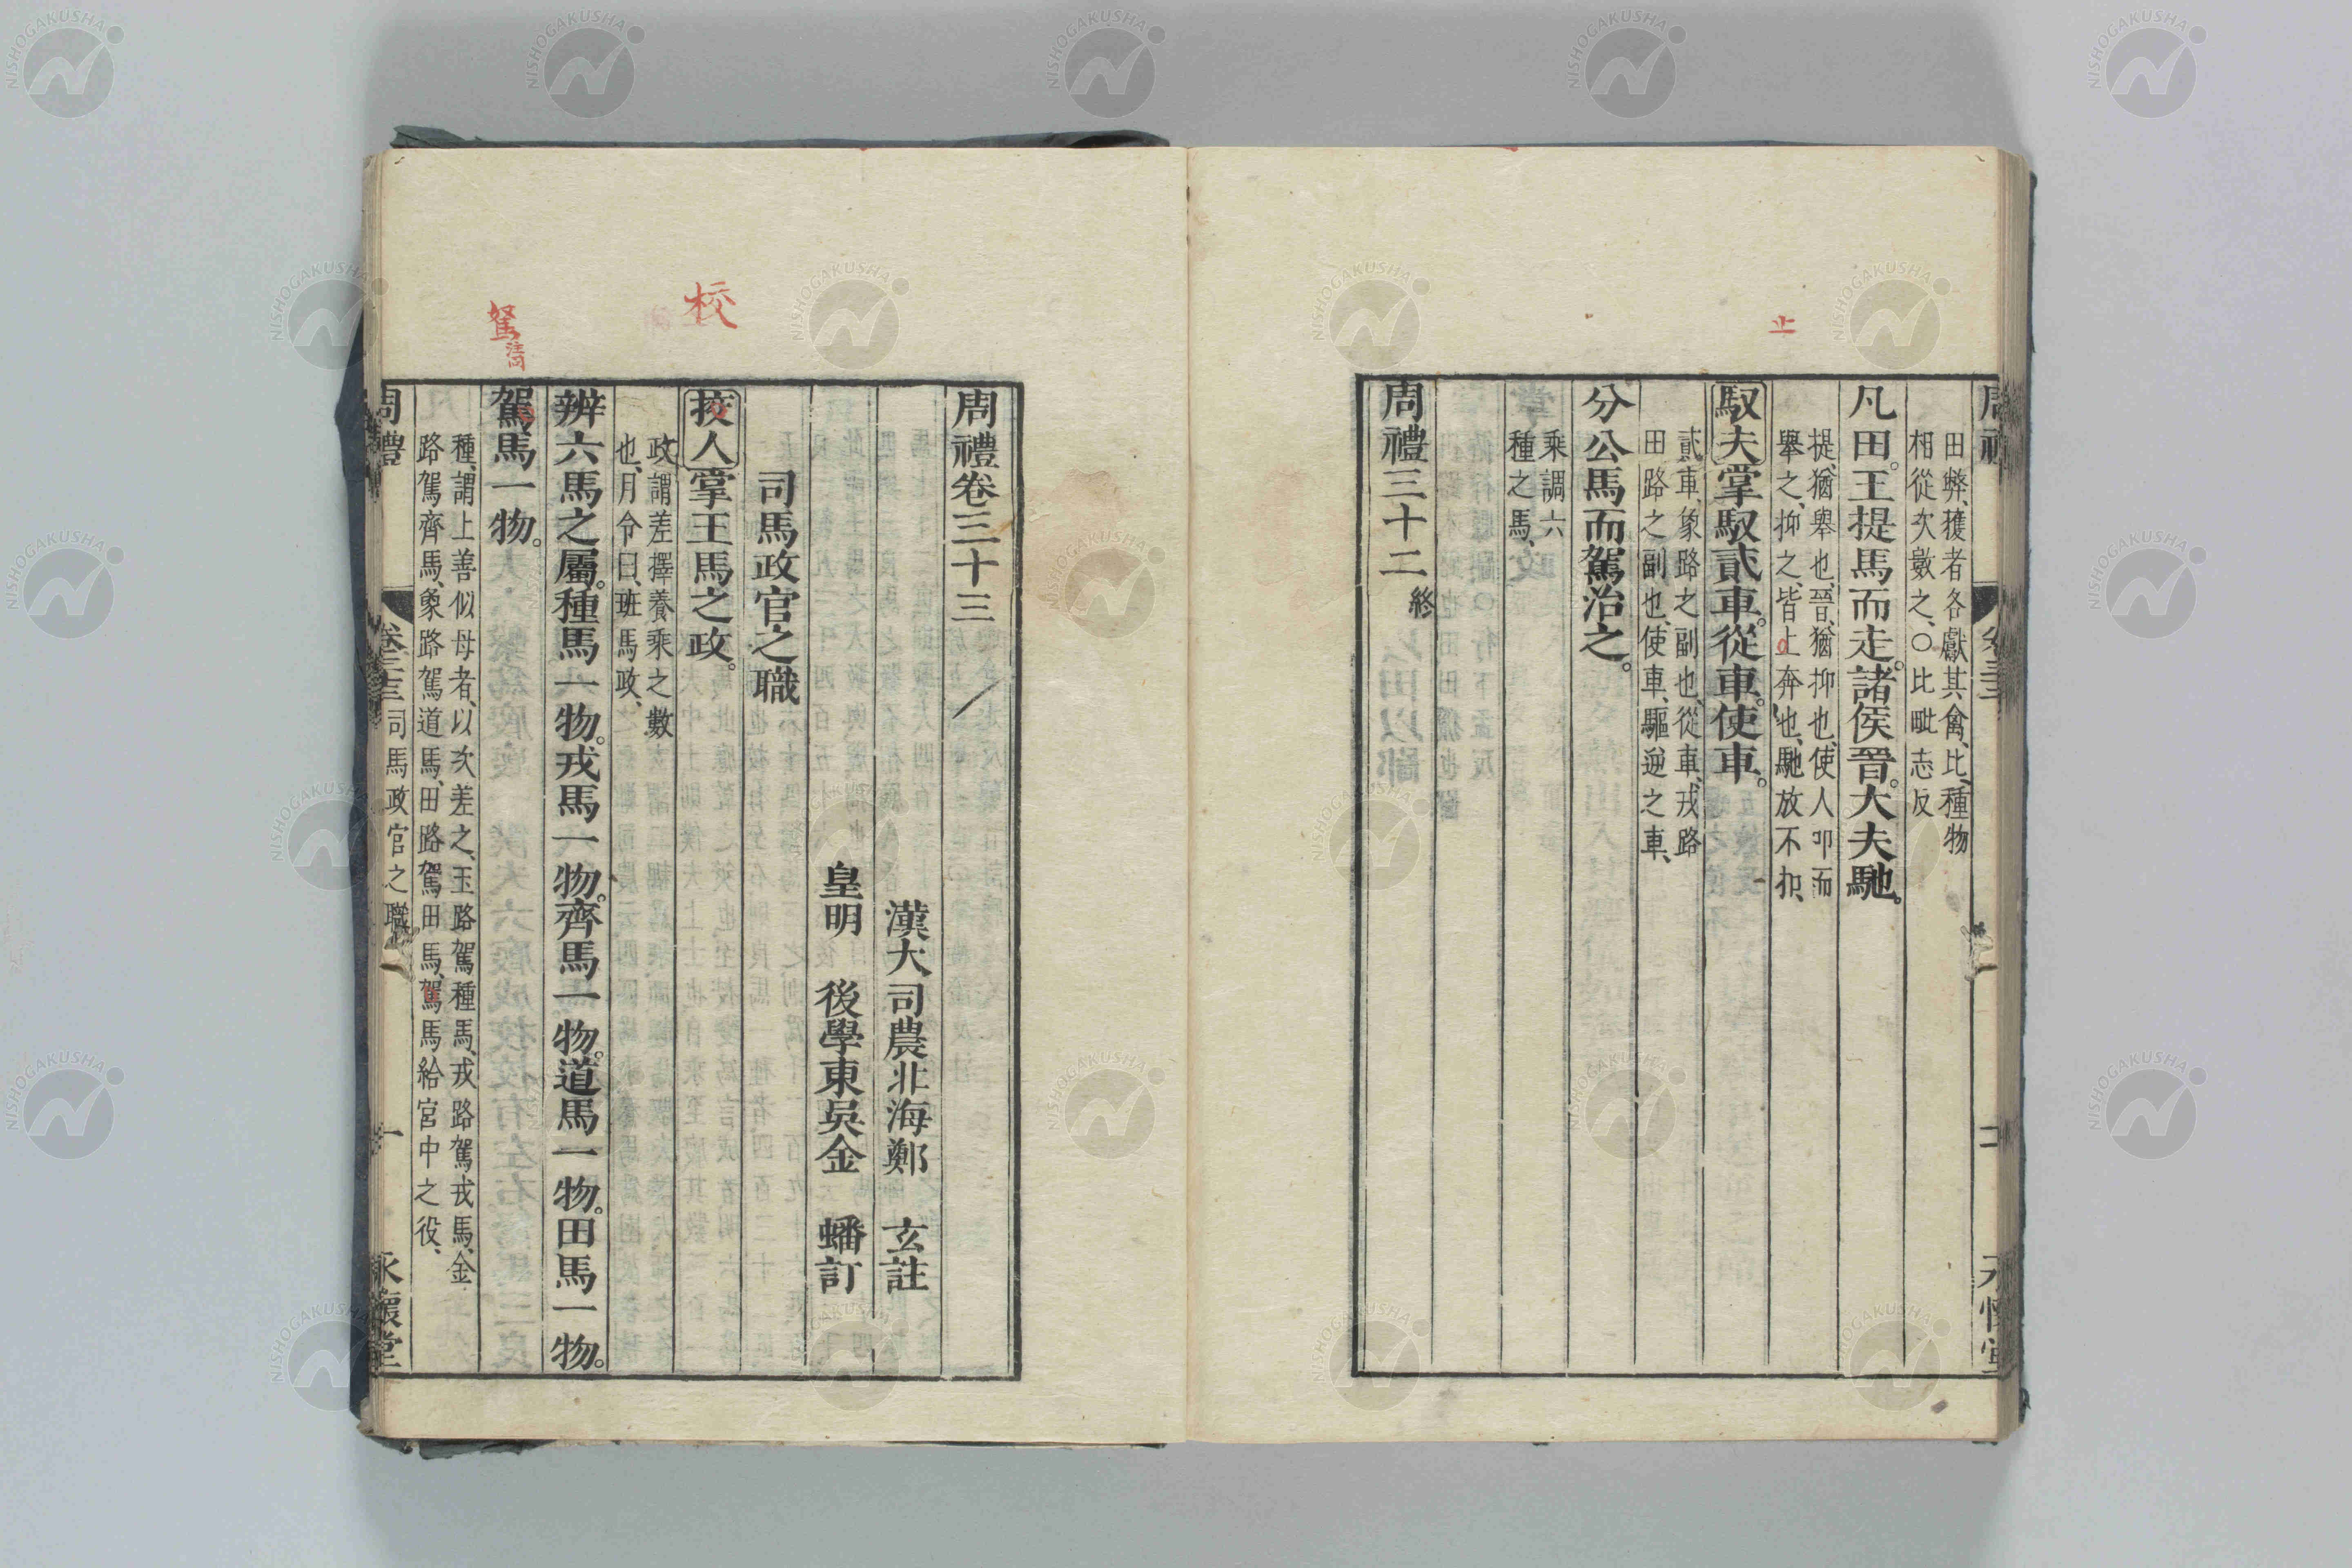 止
周禮
田弊、獲者各獻其禽、比、種物
相從次數之、〇比毗志反
凡田。王提馬而走。諸侯晉。大夫馳。
提、猶舉也、晉、猶抑也、使人叩而
舉之、抑之、皆上奔也、馳放不扣、
馭夫掌馭貳車。從車。使車。
貳車、象路之副也、從車、戎路
田路之副也、使車、驅逆之車、
分公馬而駕治之。
乘調六
種之馬、
周禮三十二 終
周禮卷三十三
漢大司農北海鄭 玄註
皇明 後學東吳金 蟠訂
司馬政官之職
校
挍人掌王馬之政。
政謂差擇養乘之數
也、月令曰、班馬政、
辨六馬之屬。種馬一物。戎馬一物。齊馬一物。道馬一物。田馬一物。
駑
注同
駕馬一物。
種、謂上善似母者、以次差之、玉路駕種馬、戎路駕戎馬、金
路駕齊馬、象路駕道馬、田路駕田馬、駕馬給宮中之役、
周禮 卷三十三 司馬政官之職 一 永懷堂
NISHOGAKUSHA